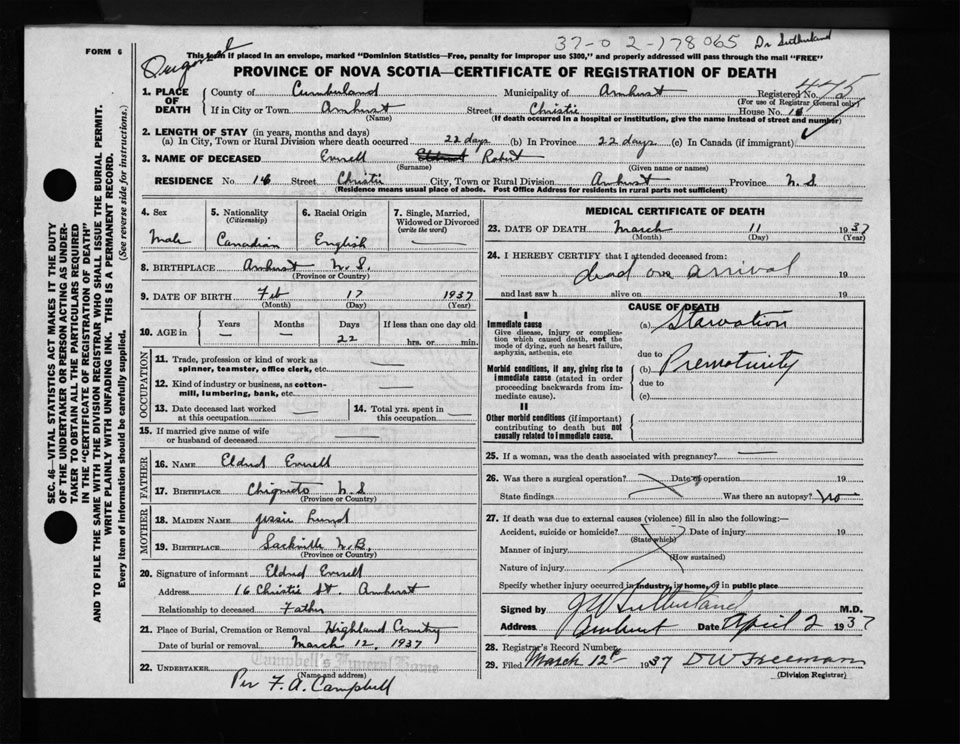 37-0 2-178065 Dr Sutherland
FORM 6
Original
This form if placed in an envelope, marked "Dominion Statistics—Free, penalty for improper use $300," and properly addressed will pass through the mail "FREE"
PROVINCE OF NOVA SCOTIA—CERTIFICATE OF REGISTRATION OF DEATH
1. PLACE OF DEATH
County of Cumberland Municipality of Amherst Registered No.
(For use of Registrar General only)
If in City or Town Amherst Street Christie House No. 16
(Name) (If death occurred in a hospital or institution, give the name instead of street and number)
2. LENGTH OF STAY (in years, months and days)
(a) In City, Town or Rural Division where death occurred 22 days (b) In Province 22 days (c) In Canada (if immigrant)
3. NAME OF DECEASED Robert
(Surname) (Given name or names)
RESIDENCE No 16 Street Christie City, Town or Rural Division Amherst Province N.S.
(Residence means usual place of abode. Post Office Address for residents in rural parts not sufficient)
4. Sex Male
5. Nationality (Citizenship) Canadian
6. Racial Origin English
7. Single, Married, Widowed or Divorced (write the word) —
8. BIRTHPLACE Amherst N.S.
(Province or Country)
9. DATE OF BIRTH Feb 17 1937
(Month) (Day) (Year)
10. AGE in Years — Months — Days 22 If less than one day old hrs. or min.
OCCUPATION
11. Trade, profession or kind of work as spinner, teamster, office clerk, etc. —
12. Kind of industry or business, as cotton-mill, lumbering, bank, etc. —
13. Date deceased last worked at this occupation —
14. Total yrs. spent in this occupation —
15. If married give name of wife or husband of deceased —
FATHER
16. NAME Eldred
17. BIRTHPLACE Chignecto N.S
(Province or Country)
MOTHER
18. MAIDEN NAME Jessie Lund
19. BIRTHPLACE Sackville N.B.
(Province or Country)
20. Signature of informant Eldred
Address 16 Christie St. Amherst
Relationship to deceased Father
21. Place of Burial, Cremation or Removal Highland
Date of burial or removal March 12, 1937
Campbell's Funeral Home
22. UNDERTAKER Per F. A. Campbell
(Name and address)
MEDICAL CERTIFICATE OF DEATH
23. DATE OF DEATH March 11 1937
(Month) (Day) (Year)
24. I HEREBY CERTIFY that I attended deceased from:
dead on arrival 19
and last saw h alive on 19
CAUSE OF DEATH
I
Immediate cause
Give disease, injury or complication which caused death, not the mode of dying, such as heart failure, asphyxia, asthenia, etc
(a) Starvation
due to
Morbid conditions, if any, giving rise to immediate cause (stated in order proceeding backwards from immediate cause).
(b) Prematurity
due to
(c)
II
Other morbid conditions (if important) contributing to death but not causally related to immediate cause.
25. If a woman, was the death associated with pregnancy? —
26. Was there a surgical operation? Date of operation 19
State findings Was there an autopsy? no
27. If death was due to external causes (violence) fill in also the following:—
Accident, suicide or homicide? Date of injury 19
(State which)
Manner of injury
(How sustained)
Nature of injury
Specify whether injury occurred in industry, in home, or in public place
Signed by J W Sutherland M.D.
Address Amherst Date April 2 1937
28. Registrar's Record Number
29. Filed March 12th 1937 D W Freeman
(Division Registrar)
SEC. 46—VITAL STATISTICS ACT MAKES IT THE DUTY
OF THE UNDERTAKER OR PERSON ACTING AS UNDER-
TAKER TO OBTAIN ALL THE PARTICULARS REQUIRED
IN THE "CERTIFICATE OF REGISTRATION OF DEATH"
AND TO FILE THE SAME WITH THE DIVISION REGISTRAR WHO SHALL ISSUE THE BURIAL PERMIT.
WRITE PLAINLY WITH UNFADING INK. THIS IS A PERMANENT RECORD.
Every item of information should be carefully supplied. (See reverse side for instructions.)